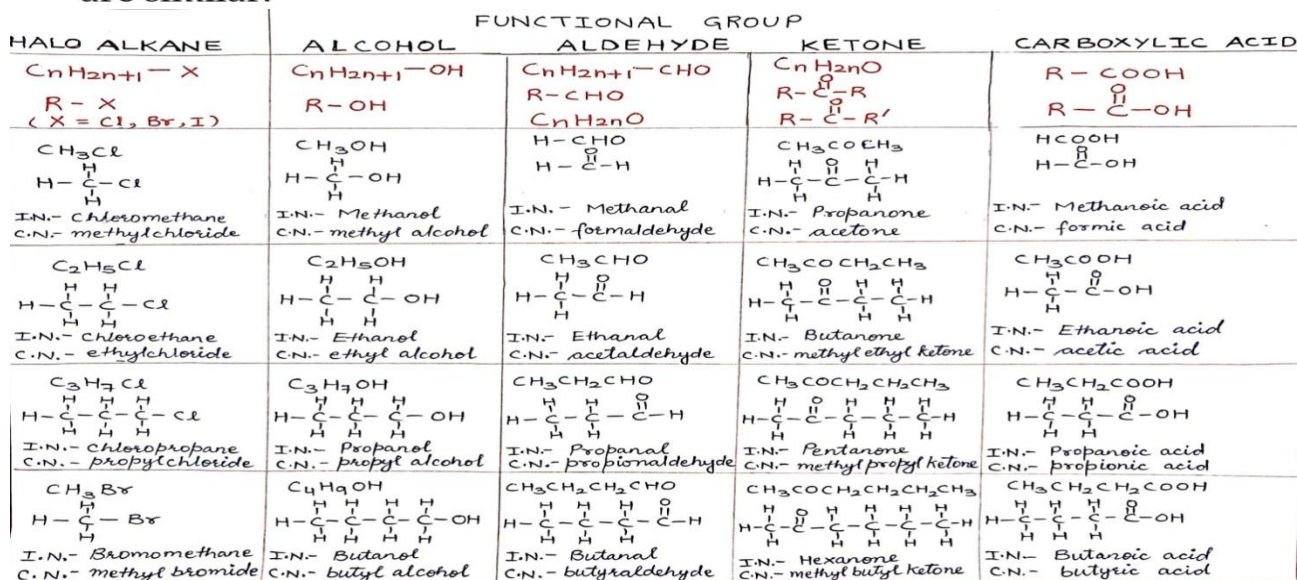 are similar.
FUNCTIONAL GROUP
HALO ALKANE
ALCOHOL
ALDEHYDE
KETONE
CARBOXYLIC ACID
CnH2n+1—X
R - X
(X = Cl, Br, I)
CnH2n+1—OH
R-OH
CnH2n+1—CHO
R-CHO
CnH2nO
CnH2nO
O
R-C-R
O
R-C-R'
R-COOH
O
R-C-OH
CH3Cl
H
H-C-Cl
H
I.N.- Chloromethane
C.N.- methylchloride
CH3OH
H
H-C-OH
H
I.N.- Methanol
C.N.- methyl alcohol
H-CHO
O
H-C-H
I.N.- Methanal
C.N.- formaldehyde
CH3COCH3
H O H
H-C-C-C-H
H H
I.N.- Propanone
C.N.- acetone
HCOOH
O
H-C-OH
I.N.- Methanoic acid
C.N.- formic acid
C2H5Cl
H H
H-C-C-Cl
H H
I.N.- Chloroethane
C.N.- ethylchloride
C2H5OH
H H
H-C-C-OH
H H
I.N.- Ethanol
C.N.- ethyl alcohol
CH3CHO
H O
H-C-C-H
H
I.N.- Ethanal
C.N.- acetaldehyde
CH3COCH2CH3
H O H H
H-C-C-C-C-H
H H H
I.N.- Butanone
C.N.- methyl ethyl ketone
CH3COOH
H O
H-C-C-OH
H
I.N.- Ethanoic acid
C.N.- acetic acid
C3H7Cl
H H H
H-C-C-C-Cl
H H H
I.N.- Chloropropane
C.N.- propylchloride
C3H7OH
H H H
H-C-C-C-OH
H H H
I.N.- Propanol
C.N.- propyl alcohol
CH3CH2CHO
H H O
H-C-C-C-H
H H
I.N.- Propanal
C.N.- propionaldehyde
CH3COCH2CH2CH3
H O H H H
H-C-C-C-C-C-H
H H H H
I.N.- Pentanone
C.N.- methyl propyl ketone
CH3CH2COOH
H H O
H-C-C-C-OH
H H
I.N.- Propanoic acid
C.N.- propionic acid
CH3Br
H
H-C-Br
H
I.N.- Bromomethane
C.N.- methyl bromide
C4H9OH
H H H H
H-C-C-C-C-OH
H H H H
I.N.- Butanol
C.N.- butyl alcohol
CH3CH2CH2CHO
H H H O
H-C-C-C-C-H
H H H
I.N.- Butanal
C.N.- butyraldehyde
CH3COCH2CH2CH2CH3
H O H H H H
H-C-C-C-C-C-C-H
H H H H H
I.N.- Hexanone
C.N.- methyl butyl ketone
CH3CH2CH2COOH
H H H O
H-C-C-C-C-OH
H H H
I.N.- Butanoic acid
C.N.- butyric acid